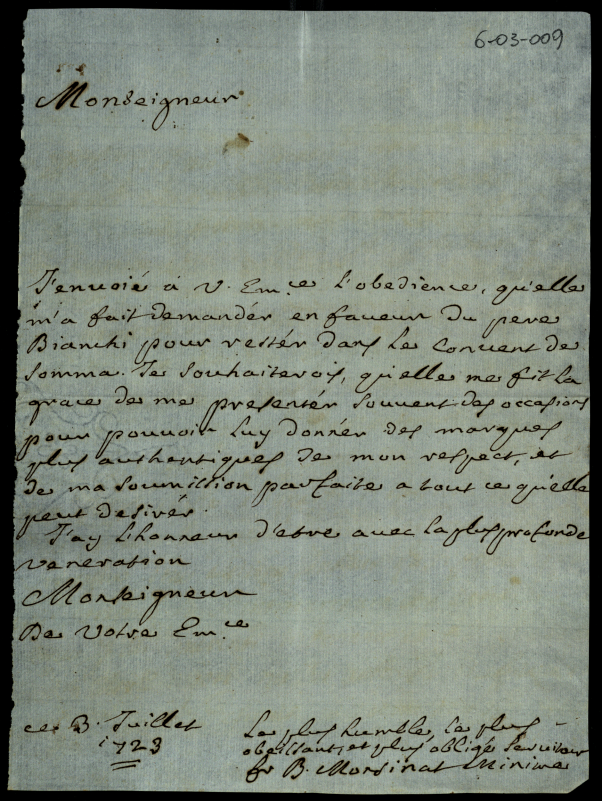 6-03-009
Monseigneur
J'envoié á V. Em.ce L'obedience, qu'elle
m'a fait demandér en faveur du pere
Bianchi pour restér dans Le Convent de
Somma. Je Souhaiterois, qu'elle me fit La
grace de me presentér Souvent des occasions
pour pouvoir Luy donnér des marques
plus authentiques de mon respect, et
de ma Soumission parfaite a tout ce qu'elle
peut desirér.
J'ay L'honneur d'etre avec La plus profonde
veneration
Monseigneur
De Votre Em.ce
ce 3. Juillet
1723
Le plus humble, Le plus
obeissant, et plus obligé Serviteur
fr B. Minime